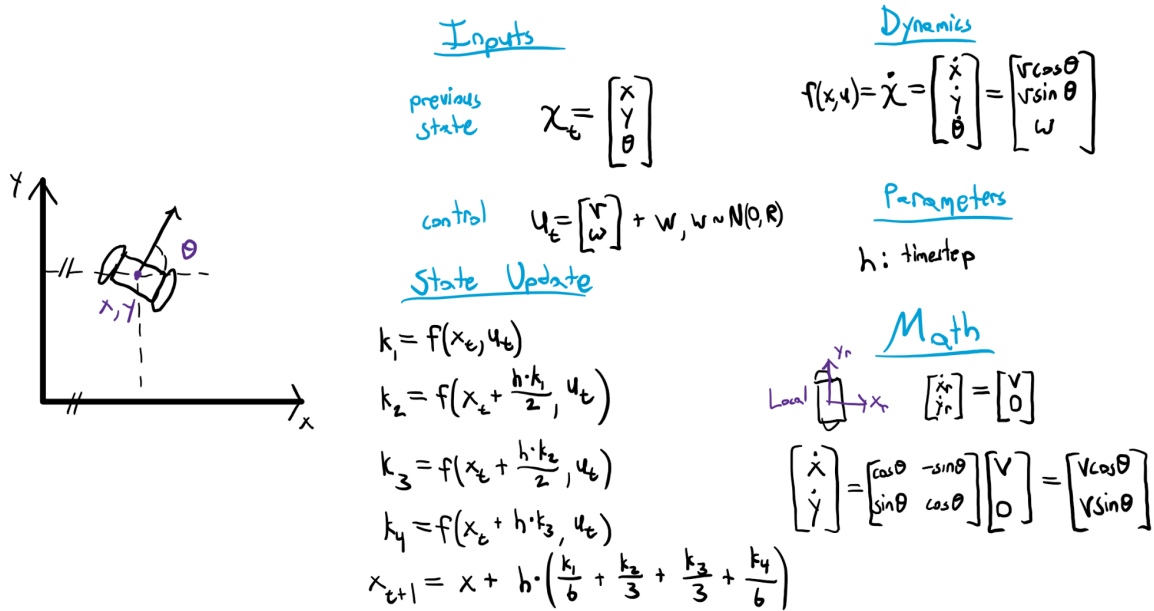 Inputs
previous state
χ_t = [x y θ]
control
u_t = [v ω] + w, w ~ N(0, R)
State Update
k_1 = f(x_t, u_t)
k_2 = f(x_t + h·k_1/2, u_t)
k_3 = f(x_t + h·k_2/2, u_t)
k_4 = f(x_t + h·k_3, u_t)
x_{t+1} = x + h·(k_1/6 + k_2/3 + k_3/3 + k_4/6)
Dynamics
f(x,u) = χ̇ = [ẋ ẏ θ̇] = [vcosθ vsinθ ω]
Parameters
h: timestep
Math
Local
Y_r
X_r
[ẋ_r ẏ_r] = [v 0]
[ẋ ẏ] = [cosθ -sinθ sinθ cosθ] [v 0] = [vcosθ vsinθ]
Y
θ
x, y
x